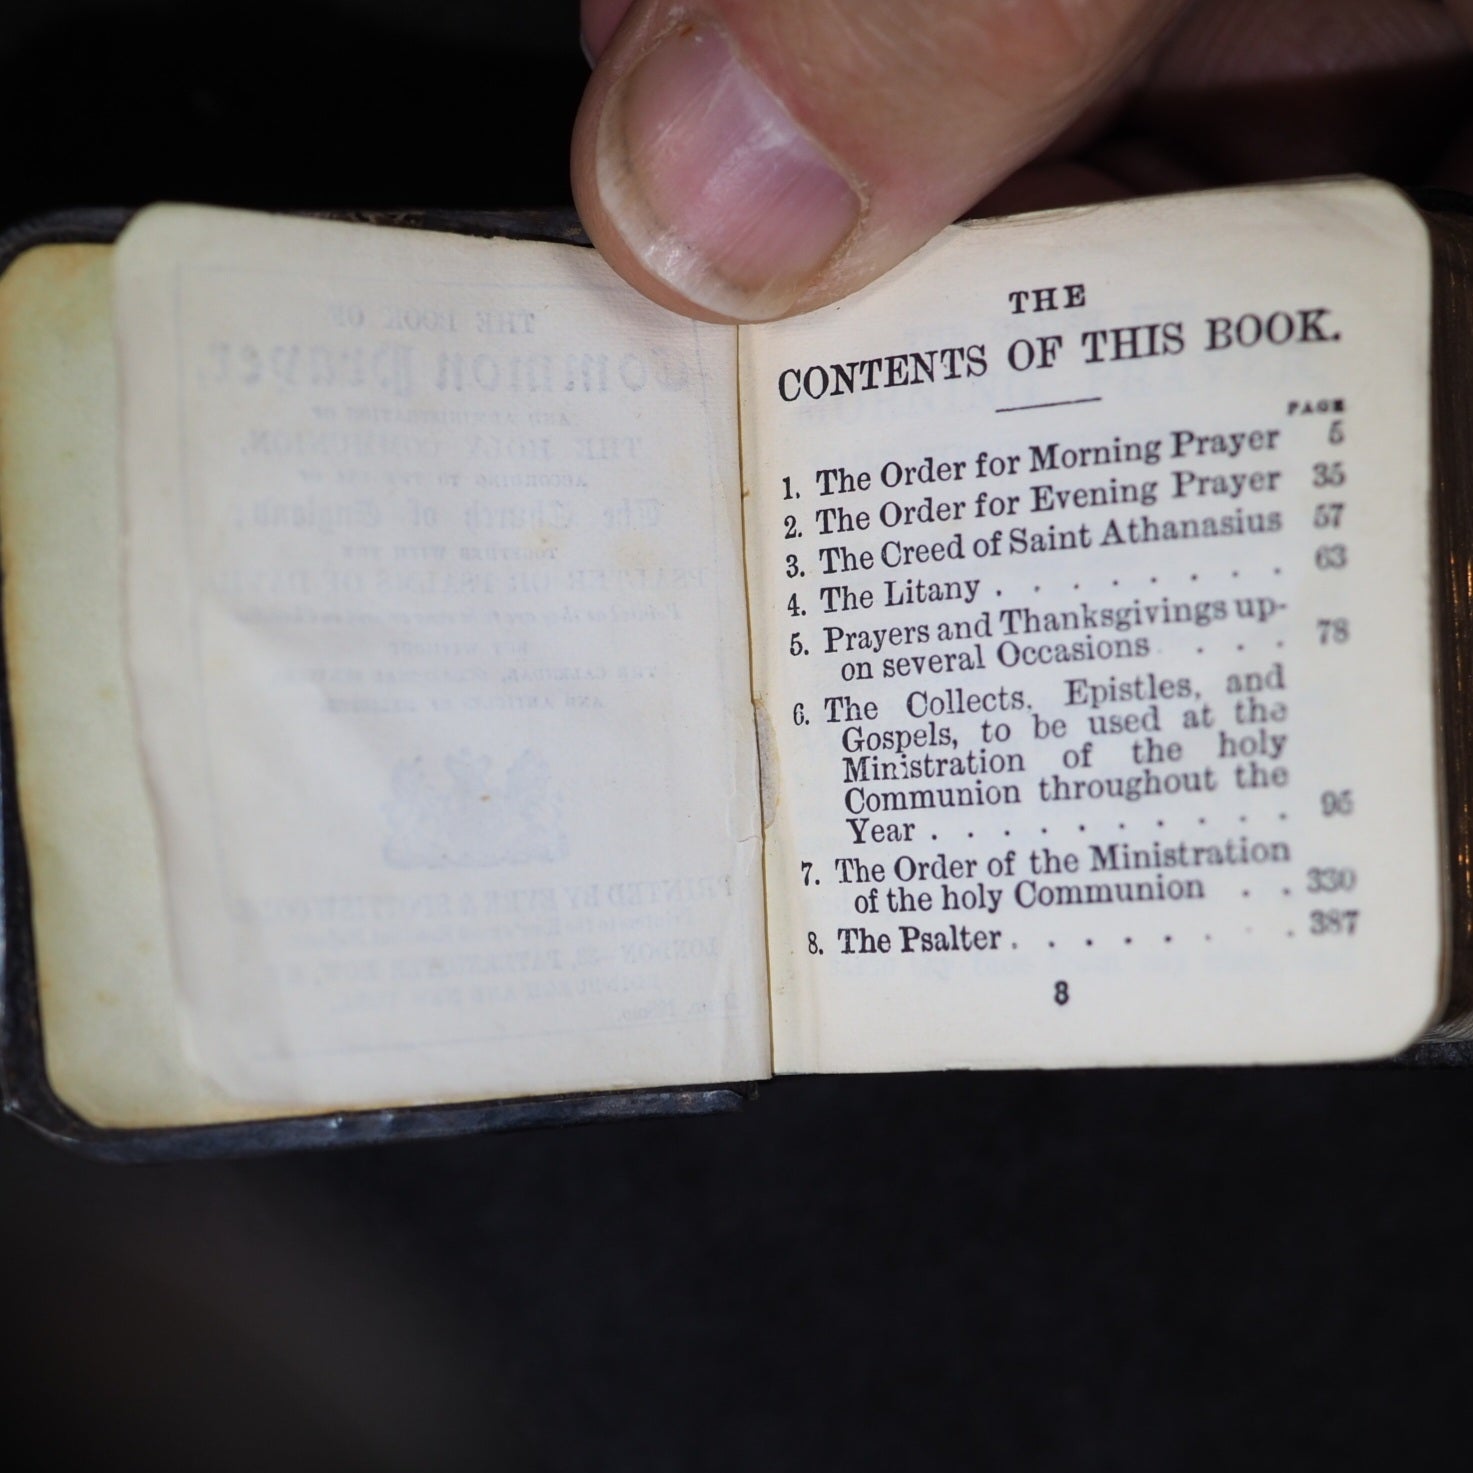 THE
CONTENTS OF THIS BOOK.
PAGE
1. The Order for Morning Prayer 5
2. The Order for Evening Prayer 35
3. The Creed of Saint Athanasius 57
4. The Litany . . . . . . . . 63
5. Prayers and Thanksgivings up-
on several Occasions . . . . 78
6. The Collects, Epistles, and
Gospels, to be used at the
Ministration of the holy
Communion throughout the
Year . . . . . . . . . . 95
7. The Order of the Ministration
of the holy Communion . . 330
8. The Psalter . . . . . . . . 387
8